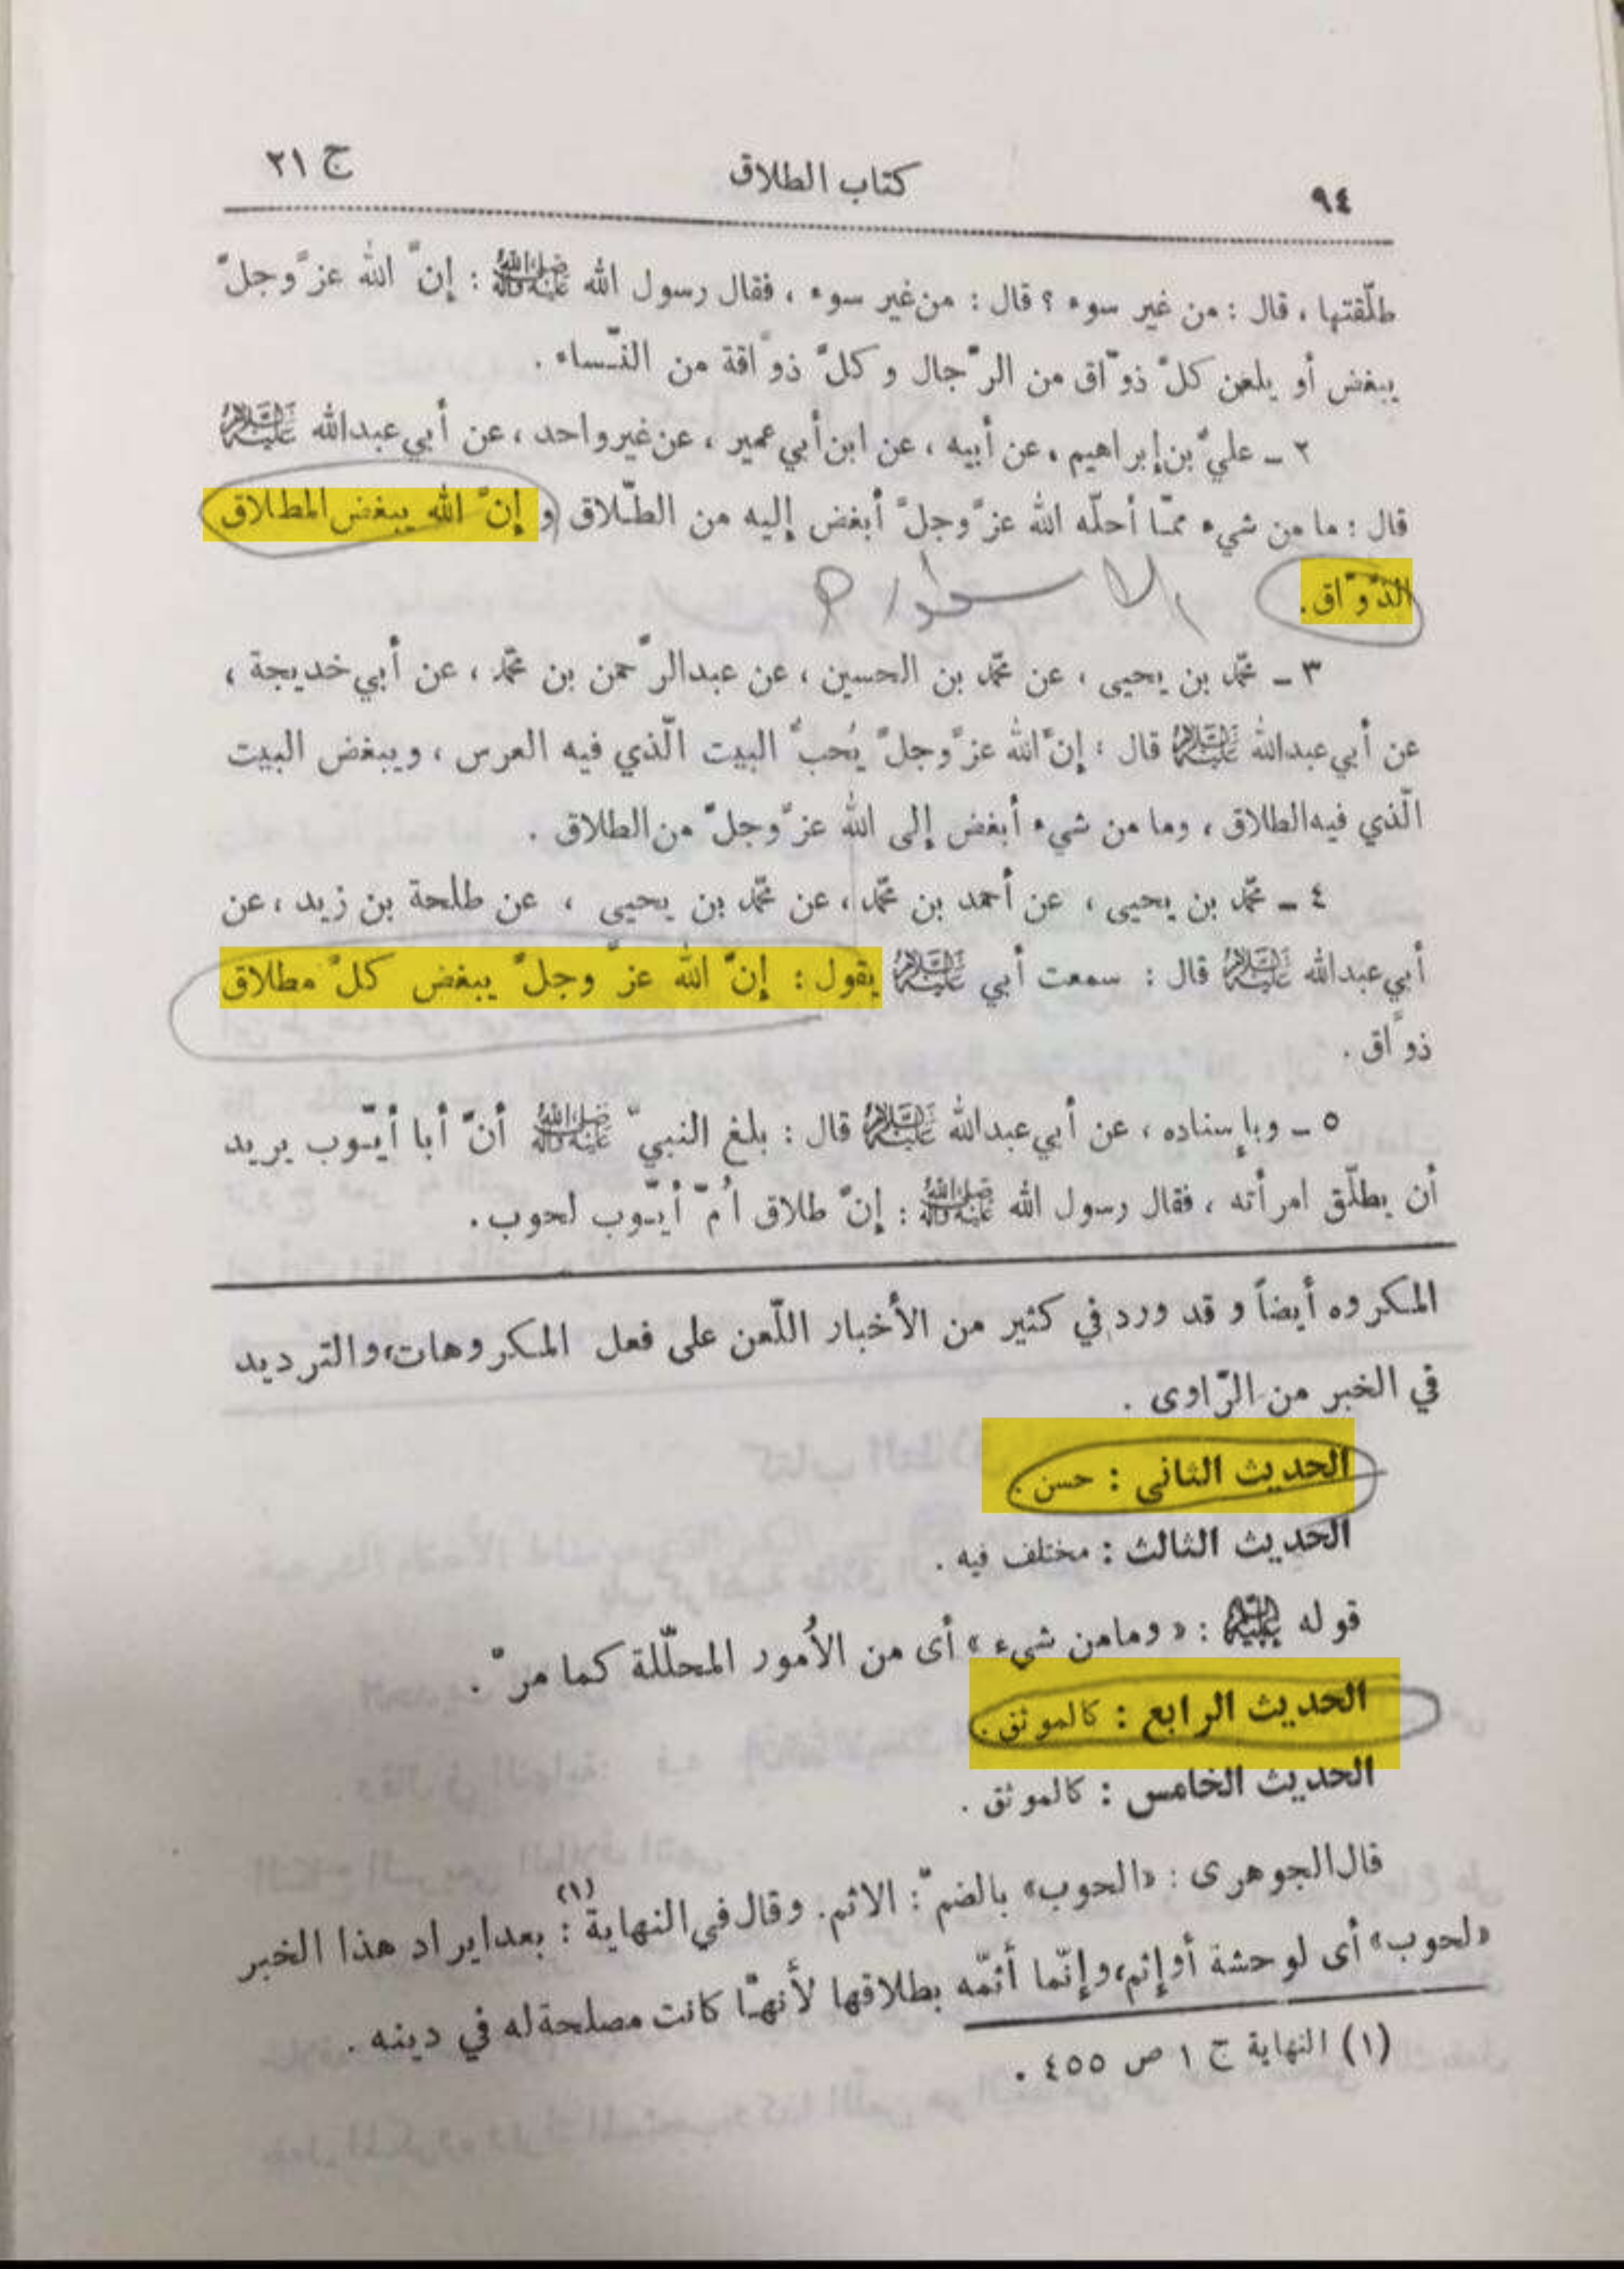 ٩٤ كتاب الطلاق ج ٢١
طلّقتها ، قال : من غير سوء ؟ قال : من غير سوء ، فقال رسول الله ﷺ : إنّ الله عزّوجلّ
يبغض أو يلعن كلّ ذوّاق من الرّجال و كلّ ذوّاقة من النّساء .
٢ ـ عليّ بن إبراهيم ، عن أبيه ، عن ابن أبي عمير ، عن غير واحد ، عن أبي عبدالله عليه السلام
قال : ما من شيء ممّا أحلّه الله عزّوجلّ أبغض إليه من الطّلاق و إنّ الله يبغض المطلاق
الذّوّاق .
٣ ـ محمّد بن يحيى ، عن محمّد بن الحسين ، عن عبدالرّحمن بن محمّد ، عن أبي خديجة ،
عن أبي عبدالله عليه السلام قال : إنّ الله عزّوجلّ يُحبّ البيت الّذي فيه العرس ، ويبغض البيت
الّذي فيه الطلاق ، وما من شيء أبغض إلى الله عزّوجلّ من الطلاق .
٤ ـ محمّد بن يحيى ، عن أحمد بن محمّد ، عن محمّد بن يحيى ، عن طلحة بن زيد ، عن
أبي عبدالله عليه السلام قال : سمعت أبي عليه السلام يقول : إنّ الله عزّ وجلّ يبغض كلّ مطلاق
ذوّاق .
٥ ـ وبإسناده ، عن أبي عبدالله عليه السلام قال : بلغ النبيّ ﷺ أنّ أبا أيّوب يريد
أن يطلّق امرأته ، فقال رسول الله ﷺ : إنّ طلاق اُمّ أيّوب لحوب .
المكروه أيضاً و قد ورد في كثير من الأخبار اللّعن على فعل المكروهات، والترديد
في الخبر من الرّاوى .
الحديث الثانى : حسن .
الحديث الثالث : مختلف فيه .
قوله عليه السلام : « ومامن شيء » أى من الاُمور المحلّلة كما مرّ .
الحديث الرابع : كالموثق .
الحديث الخامس : كالموثق .
قال الجوهرى : «الحوب» بالضمّ : الاثم. وقال في النهاية (١) : بعد ايراد هذا الخبر
«لحوب» أى لوحشة أو إثم، وإنّما أثمّه بطلاقها لأنهّا كانت مصلحة له في دينه .
(١) النهاية ج ١ ص ٤٥٥ .